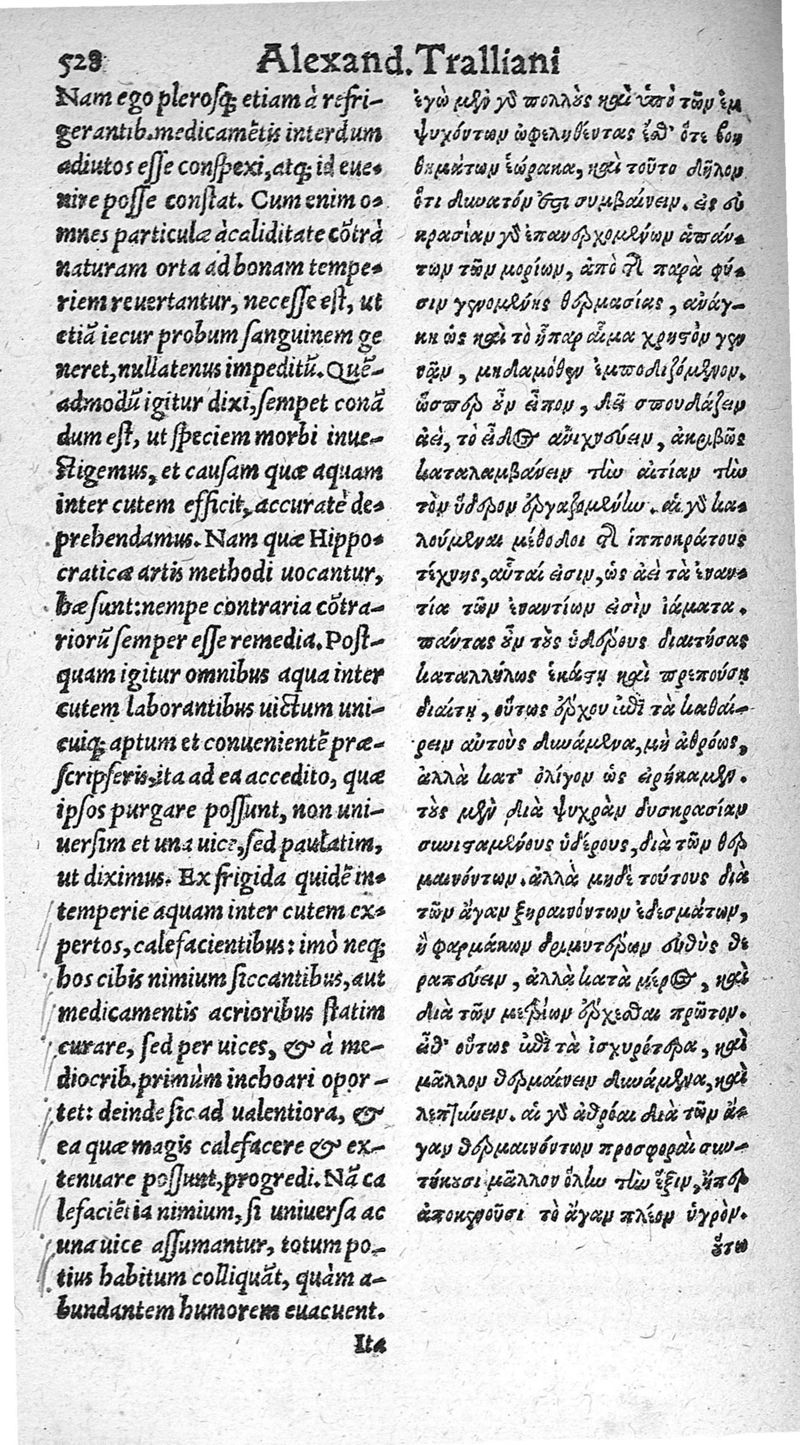 528
Alexand. Tralliani
Nam ego plerosq; etiam à refri-
gerantib. medicamẽtis interdum
adiutos esse conspexi, atq; id eue-
nire posse constat. Cum enim o-
mnes particulæ à caliditate cõtrà
naturam orta ad bonam tempe-
riem reuertantur, necesse est, ut
etiã iecur probum sanguinem ge
neret, nullatenus impeditũ. Quẽ-
admodũ igitur dixi, sempet conã
dum est, ut speciem morbi inue-
stigemus, et causam quæ aquam
inter cutem efficit, accuratè de-
prehendamus. Nam quæ Hippo-
craticæ artis methodi uocantur,
hæ sunt: nempe contraria cõtra-
riorũ semper esse remedia. Post-
quam igitur omnibus aqua inter
cutem laborantibus uictum uni-
cuiq; aptum et conuenientẽ præ-
scripseris, ita ad ea accedito, quæ
ipsos purgare possunt, non uni-
uersim et una uice, sed paulatim,
ut diximus. Ex frigida quidẽ in-
temperie aquam inter cutem ex-
pertos, calefacientibus: imò neq;
hos cibis nimium siccantibus, aut
medicamentis acrioribus statim
curare, sed per uices, & à me-
diocrib. primùm inchoari opor-
tet: deinde sic ad ualentiora, &
ea quæ magis calefacere & ex-
tenuare possunt, progredi. Nã ca
lefaciẽtia nimium, si uniuersa ac
una uice assumantur, totum po-
tius habitum colliquãt, quàm a-
bundantem humorem euacuent.
Ita
ἐγὼ μὲν γὸ πολλοὺς καὶ ὑπὸ τῶν ἐμ
ψυχόντων ὠφεληθέντας ἔσθ' ὅτε βοη
θημάτων ἑώρακα, καὶ τοῦτο δῆλον
ὅτι δυνατόν ἐστι συμβαίνειν. εἰς εὐ
κρασίαν γὸ ἐπανερχομένων ἁπάν-
των τῶν μορίων, ἀπὸ τῆς παρὰ φύ-
σιν γενομένης θερμασίας, ἀνάγ-
κη ὡς καὶ τὸ ἧπαρ αἷμα χρηστὸν γεν
νᾷν, μηδαμόθεν ἐμποδιζόμενον.
ὥσπερ οὖν εἶπον, δεῖ σπουδάζειν
ἀεὶ, τὸ εἶδος ἀνιχνεύειν, ἀκριβῶς
καταλαμβάνειν τὴν αἰτίαν τὴν
τὸν ὕδερον ἐργαζομένην. αἱ γὸ κα-
λούμεναι μέθοδοι τῆς ἱπποκράτους
τέχνης, αὗταί εἰσιν, ὡς ἀεὶ τὰ ἐναν-
τία τῶν ἐναντίων εἰσὶν ἰάματα.
πάντας οὖν τοὺς ὑδέρους διαιτήσας
καταλλήλως ἑκάστῃ καὶ πρεπούσῃ
διαίτῃ, οὕτως ἔρχου ἐπὶ τὰ καθαί-
ρειν αὐτοὺς δυνάμενα, μὴ ἀθρόως,
ἀλλὰ κατ' ὀλίγον ὡς εἰρήκαμεν.
τοὺς μὲν διὰ ψυχρὰν δυσκρασίαν
συνισταμένους ὑδέρους, διὰ τῶν θερ
μαινόντων. ἀλλὰ μηδὲ τούτους διὰ
τῶν ἄγαν ξηραινόντων ἐδεσμάτων,
ἢ φαρμάκων δριμυτέρων εὐθὺς θε
ραπεύειν, ἀλλὰ κατὰ μέρος, καὶ
διὰ τῶν μετρίων ἔρχεσθαι πρῶτον.
εἶθ' οὕτως ἐπὶ τὰ ἰσχυρότερα, καὶ
μᾶλλον θερμαίνειν δυνάμενα, καὶ
λεπτύνειν. αἱ γὸ ἀθρόαι διὰ τῶν ἄ-
γαν θερμαινόντων προσφοραὶ συν-
τήκουσι μᾶλλον ὅλην τὴν ἕξιν, ἤπερ
ἀποκενοῦσι τὸ ἄγαν πλέον ὑγρὸν.
οὕτω